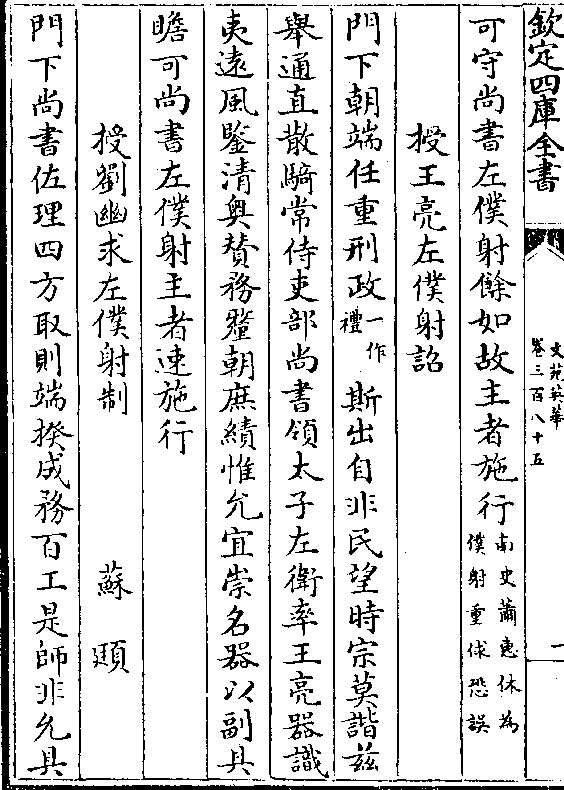 欽定四庫全書
文苑英華
卷三百八十五
一
可守尚書左僕射餘如故主者施行南史蕭惠休為僕射重俅恐誤
授王亮左僕射詔
門下朝端任重刑政一作禮斯出自非民望時宗莫諧兹
舉通直散騎常侍吏部尚書領太子左衛率王亮器識
夷遠風鑒清奥賛務釐朝庶績惟允宜崇名器以副具
瞻可尚書左僕射主者速施行
授劉幽求左僕射制 蘇頲
門下尚書佐理四方取則端揆成務百工是師非允具